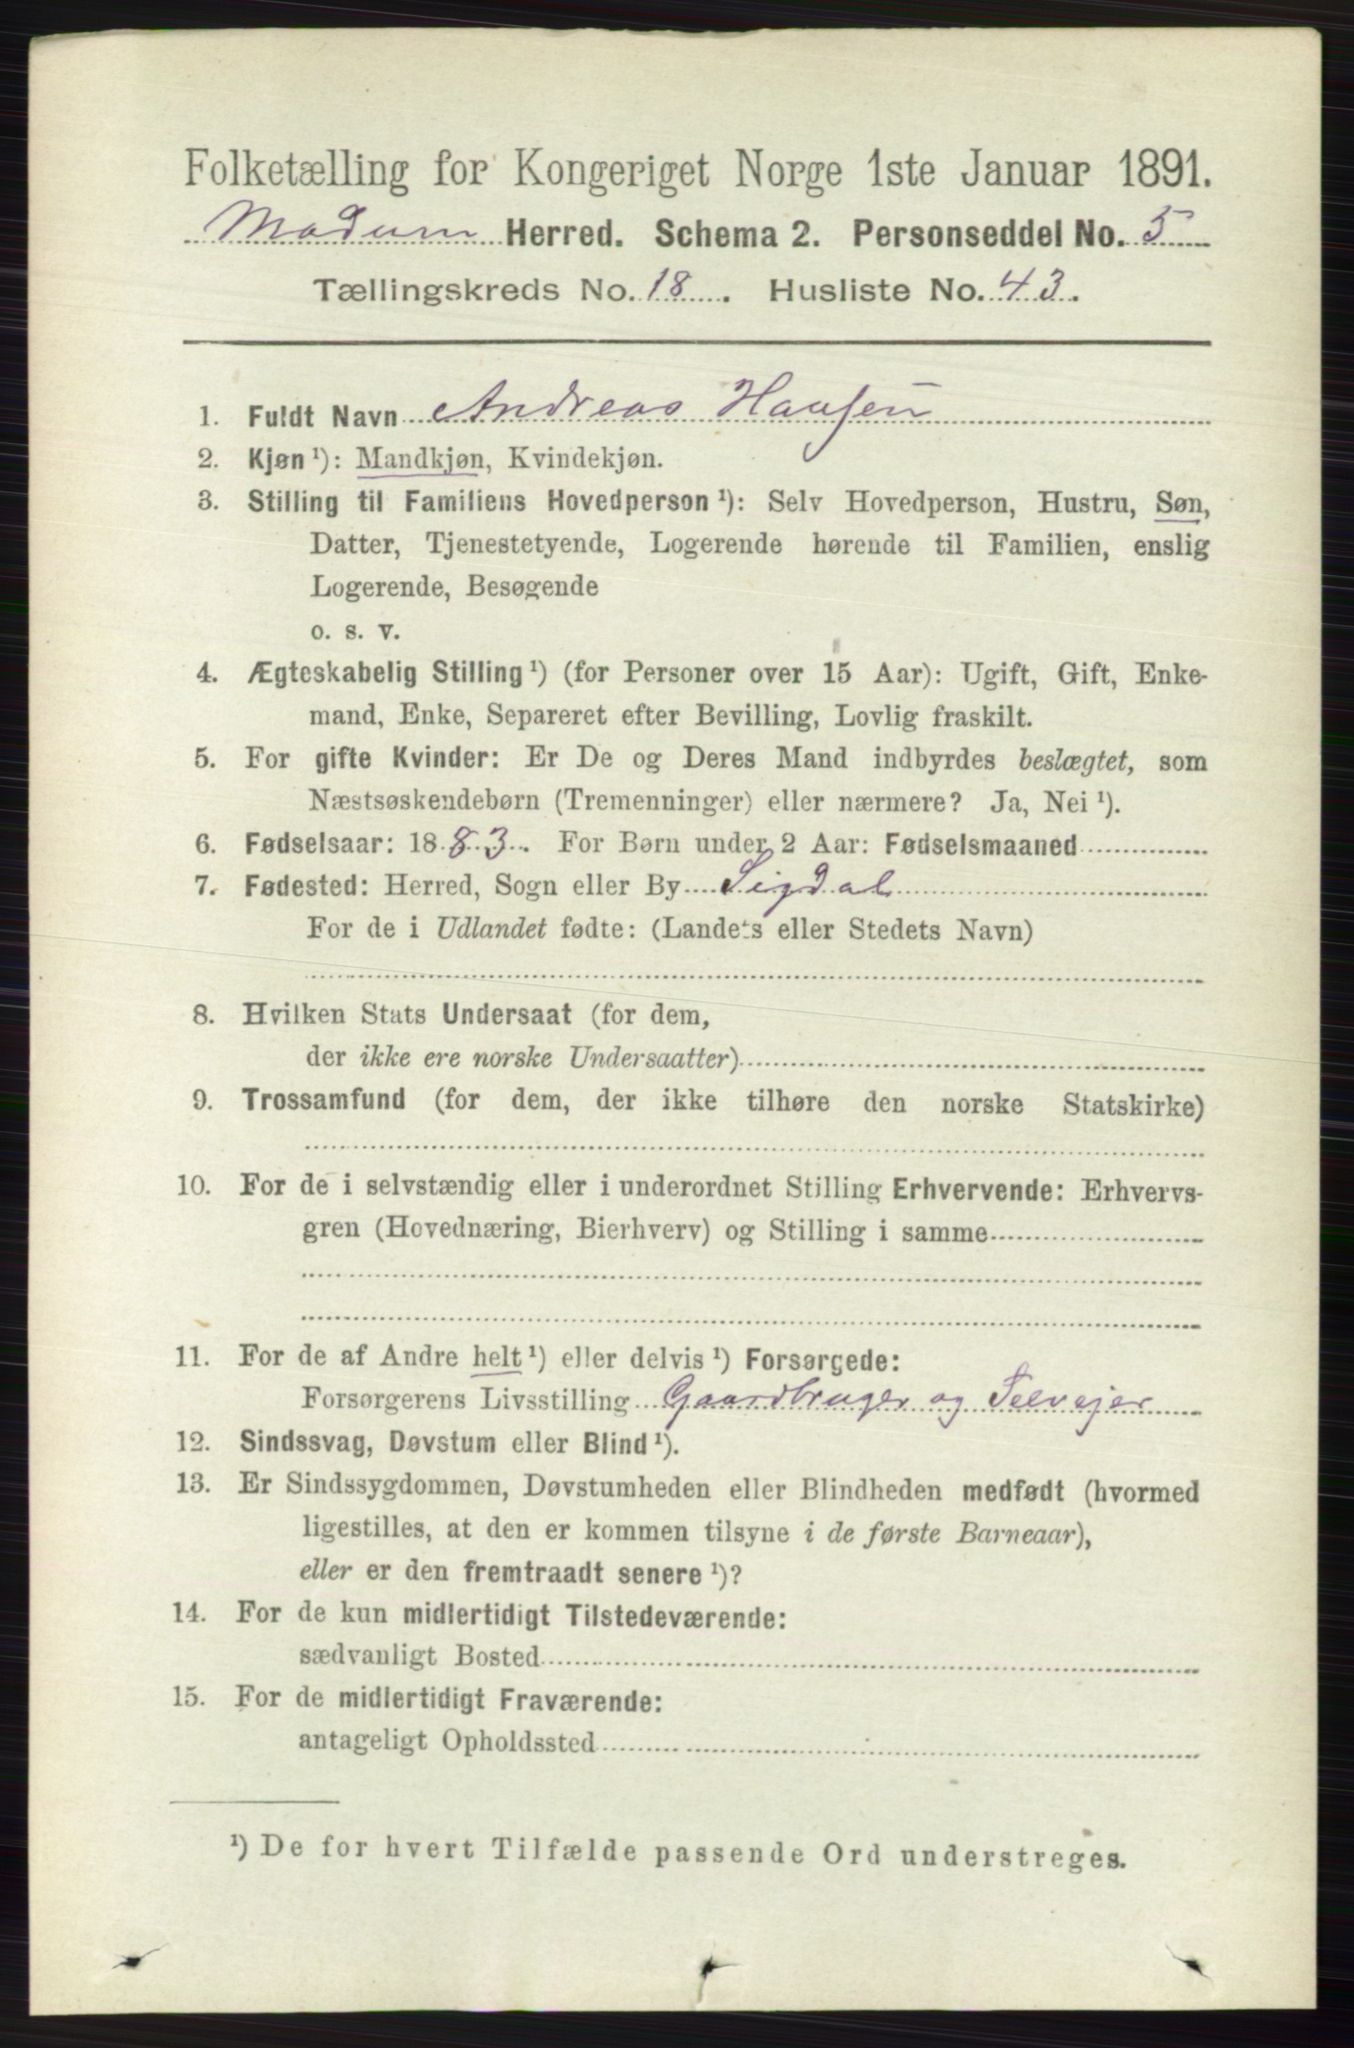 Folketælling for Kongeriget Norge 1ste Januar 1891.
Modum Herred. Schema 2. Personseddel No. 5
Tællingskreds No. 18. Husliste No. 43.
1. Fuldt Navn Andreas Hansen
2. Kjøn ¹): Mandkjøn, Kvindekjøn.
3. Stilling til Familiens Hovedperson ¹): Selv Hovedperson, Hustru, Søn,
Datter, Tjenestetyende, Logerende hørende til Familien, enslig
Logerende, Besøgende
o. s. v.
4. Ægteskabelig Stilling ¹) (for Personer over 15 Aar): Ugift, Gift, Enke-
mand, Enke, Separeret efter Bevilling, Lovlig fraskilt.
5. For gifte Kvinder: Er De og Deres Mand indbyrdes beslægtet, som
Næstsøskendebørn (Tremenninger) eller nærmere? Ja, Nei ¹).
6. Fødselsaar: 1883. For Børn under 2 Aar: Fødselsmaaned
7. Fødested: Herred, Sogn eller By Sigdal
For de i Udlandet fødte: (Landets eller Stedets Navn)
8. Hvilken Stats Undersaat (for dem,
der ikke ere norske Undersaatter)
9. Trossamfund (for dem, der ikke tilhøre den norske Statskirke)
10. For de i selvstændig eller i underordnet Stilling Erhvervende: Erhvervs-
gren (Hovednæring, Bierhverv) og Stilling i samme
11. For de af Andre helt ¹) eller delvis ¹) Forsørgede:
Forsørgerens Livsstilling Gaardbruger og Selvejer
12. Sindssvag, Døvstum eller Blind ¹).
13. Er Sindssygdommen, Døvstumheden eller Blindheden medfødt (hvormed
ligestilles, at den er kommen tilsyne i de første Barneaar),
eller er den fremtraadt senere ¹)?
14. For de kun midlertidigt Tilstedeværende:
sædvanligt Bosted
15. For de midlertidigt Fraværende:
antageligt Opholdssted
¹) De for hvert Tilfælde passende Ord understreges.